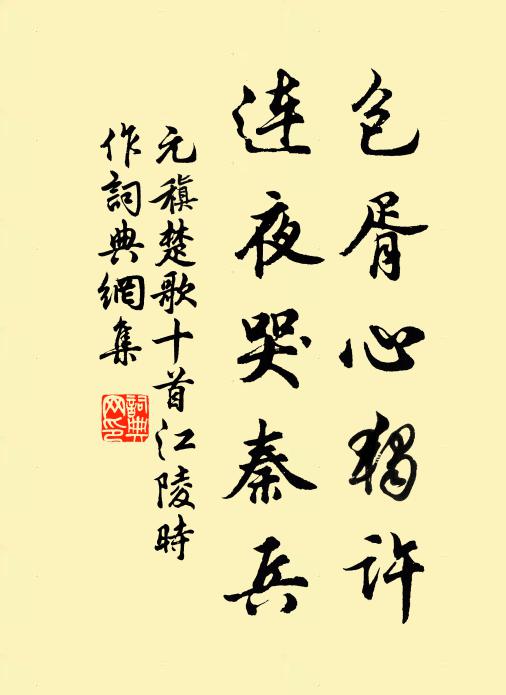 包胥心独许
連夜哭秦兵
元稹楚歌十首江陵時
作詞典網集
詞典
网印